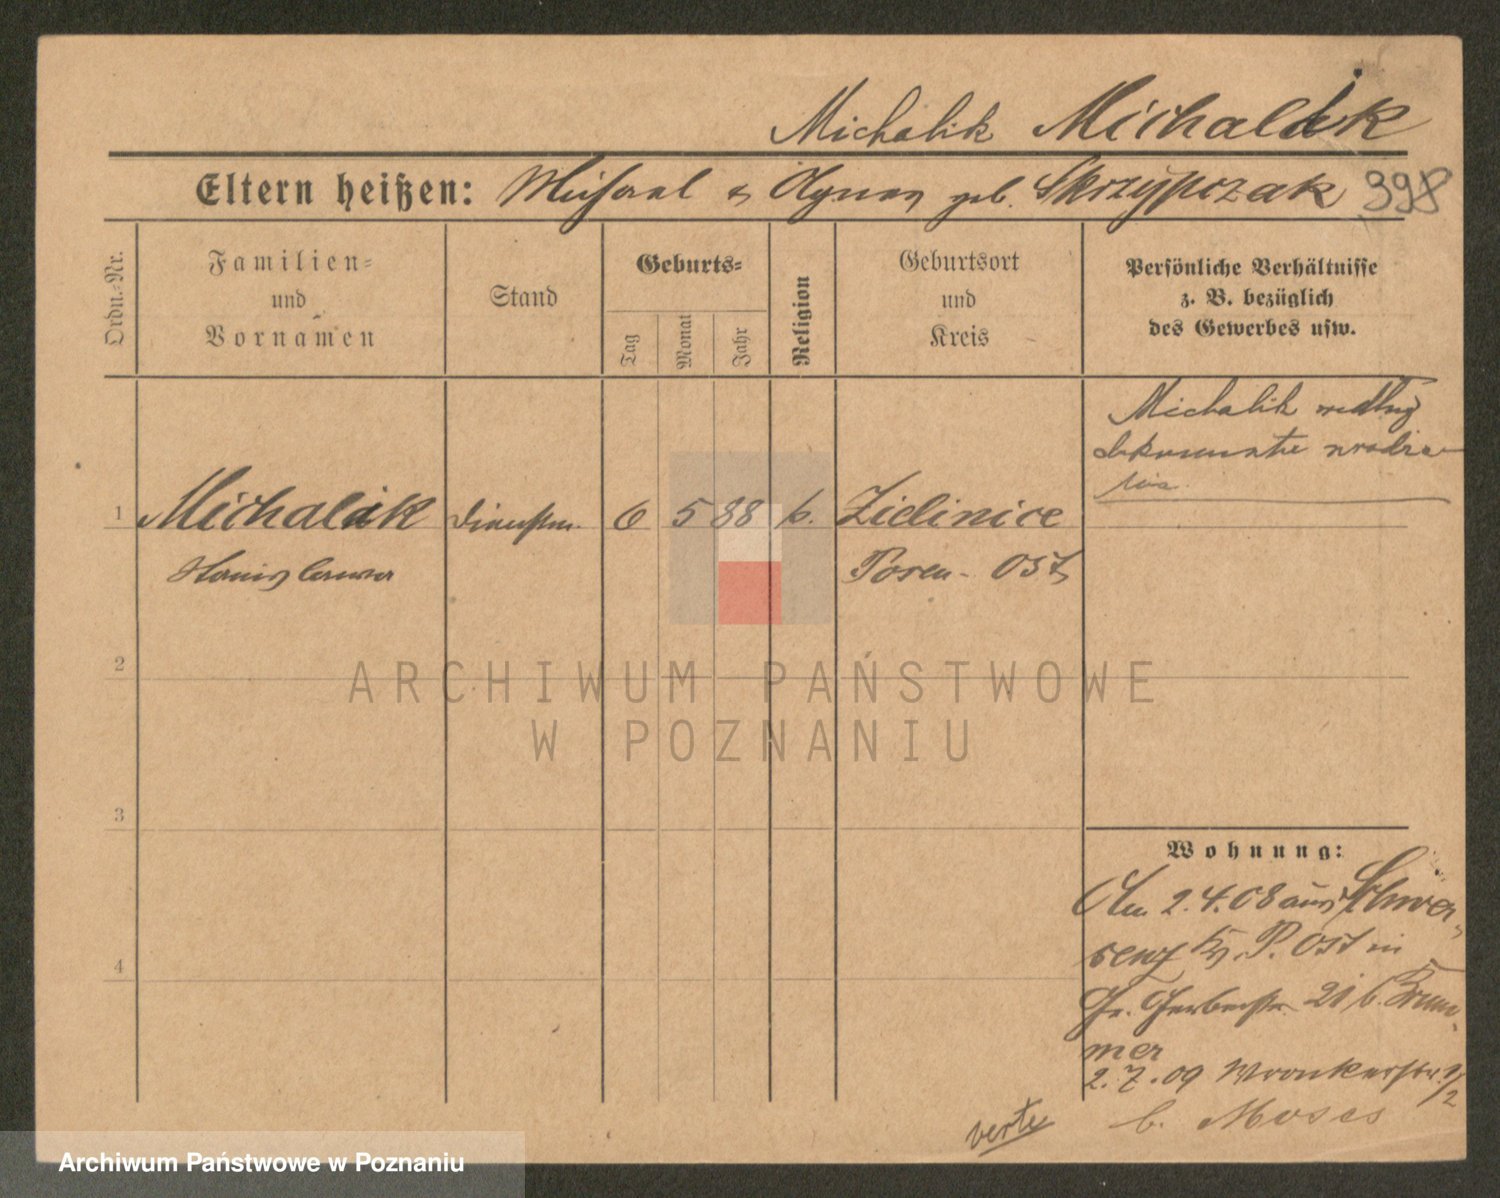 Michalik Michalik
Eltern heißen: Michael & Agnes geb. Skrzypczak 398
Ordn.-Nr.
Familien-
und
Vornamen
Stand
Geburts-
Tag
Monat
Jahr
Religion
Geburtsort
und
Kreis
Persönliche Verhältnisse
z. B. bezüglich
des Gewerbes usw.
Michalik według
dokumentu urodze-
nia
1 Michalik Dienstm. 6 5 88 k. Zielinice
Posen - Ost
2
3
4
Wohnung:
Am 2.4.08 aus Schwer-
senz Kr. P. Ost in
Gr. Gerberstr. 21 b.
mer
2.7.09 Wronkerstr. 1/2
b. Moses
verte
ARCHIWUM PAŃSTWOWE
W POZNANIU
Archiwum Państwowe w Poznaniu